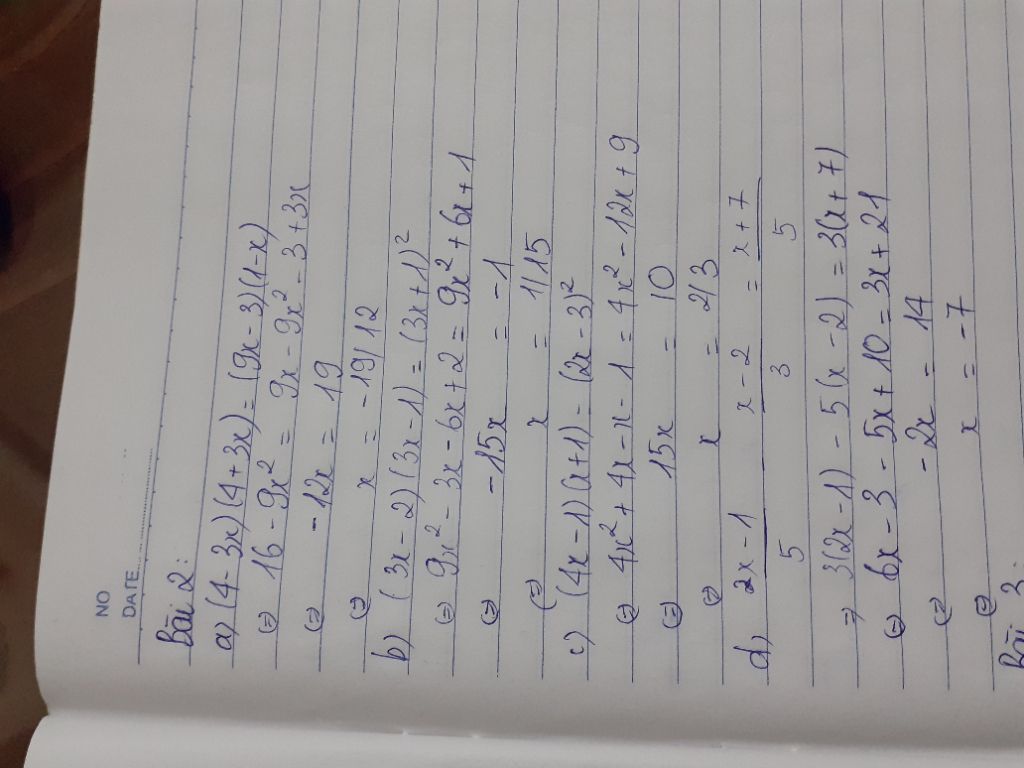 NO
DATE
Bài 2:
a) (4-3x)(4+3x)=(9x-3)(1-x)
⇔ 16-9x² = 9x-9x²-3+3x
⇔ -12x = 19
⇔ x = -19/12
b) (3x-2)(3x-1)=(3x+1)²
⇔ 9x²-3x-6x+2=9x²+6x+1
⇔ -15x = -1
⇔ x = 1/15
c) (4x-1)(x+1)=(2x-3)²
⇔ 4x²+4x-x-1=4x²-12x+9
⇔ 15x = 10
⇔ x = 2/3
d) 2x-1 x-2 = x+7
5 3 5
⇒ 3(2x-1)-5(x-2)=3(x+7)
⇔ 6x-3-5x+10=3x+21
⇔ -2x = 14
⇔ x = -7
Bài 3: